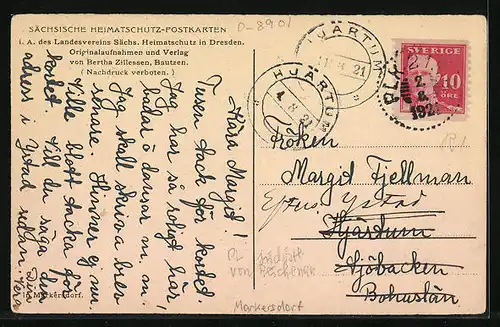 SÄCHSISCHE HEIMATSCHUTZ-POSTKARTEN
i. A. des Landesvereins Sächs. Heimatschutz in Dresden.
Originalaufnahmen und Verlag
von Bertha Zillessen, Bautzen.
(Nachdruck verboten.)
D-8901
HJÄRTUM
21
HJÄRTUM
4 8 21
PLK 27
2 8 192
SVERIGE
10
ÖRE
Kära Margit!
Tusen tack för kortet.
Jag har så roligt här,
badar o dansar m. m.
Jag skall skriva brev
senare. Hinner ej nu.
Ville blott tacka för
kortet. Vill du säga din
adress i Ystad
Fröken
Margit Fjellman
Ystad
Hjärtum
Sjöbacken
Bohuslän
Markersdorf.
von
Markersdorf